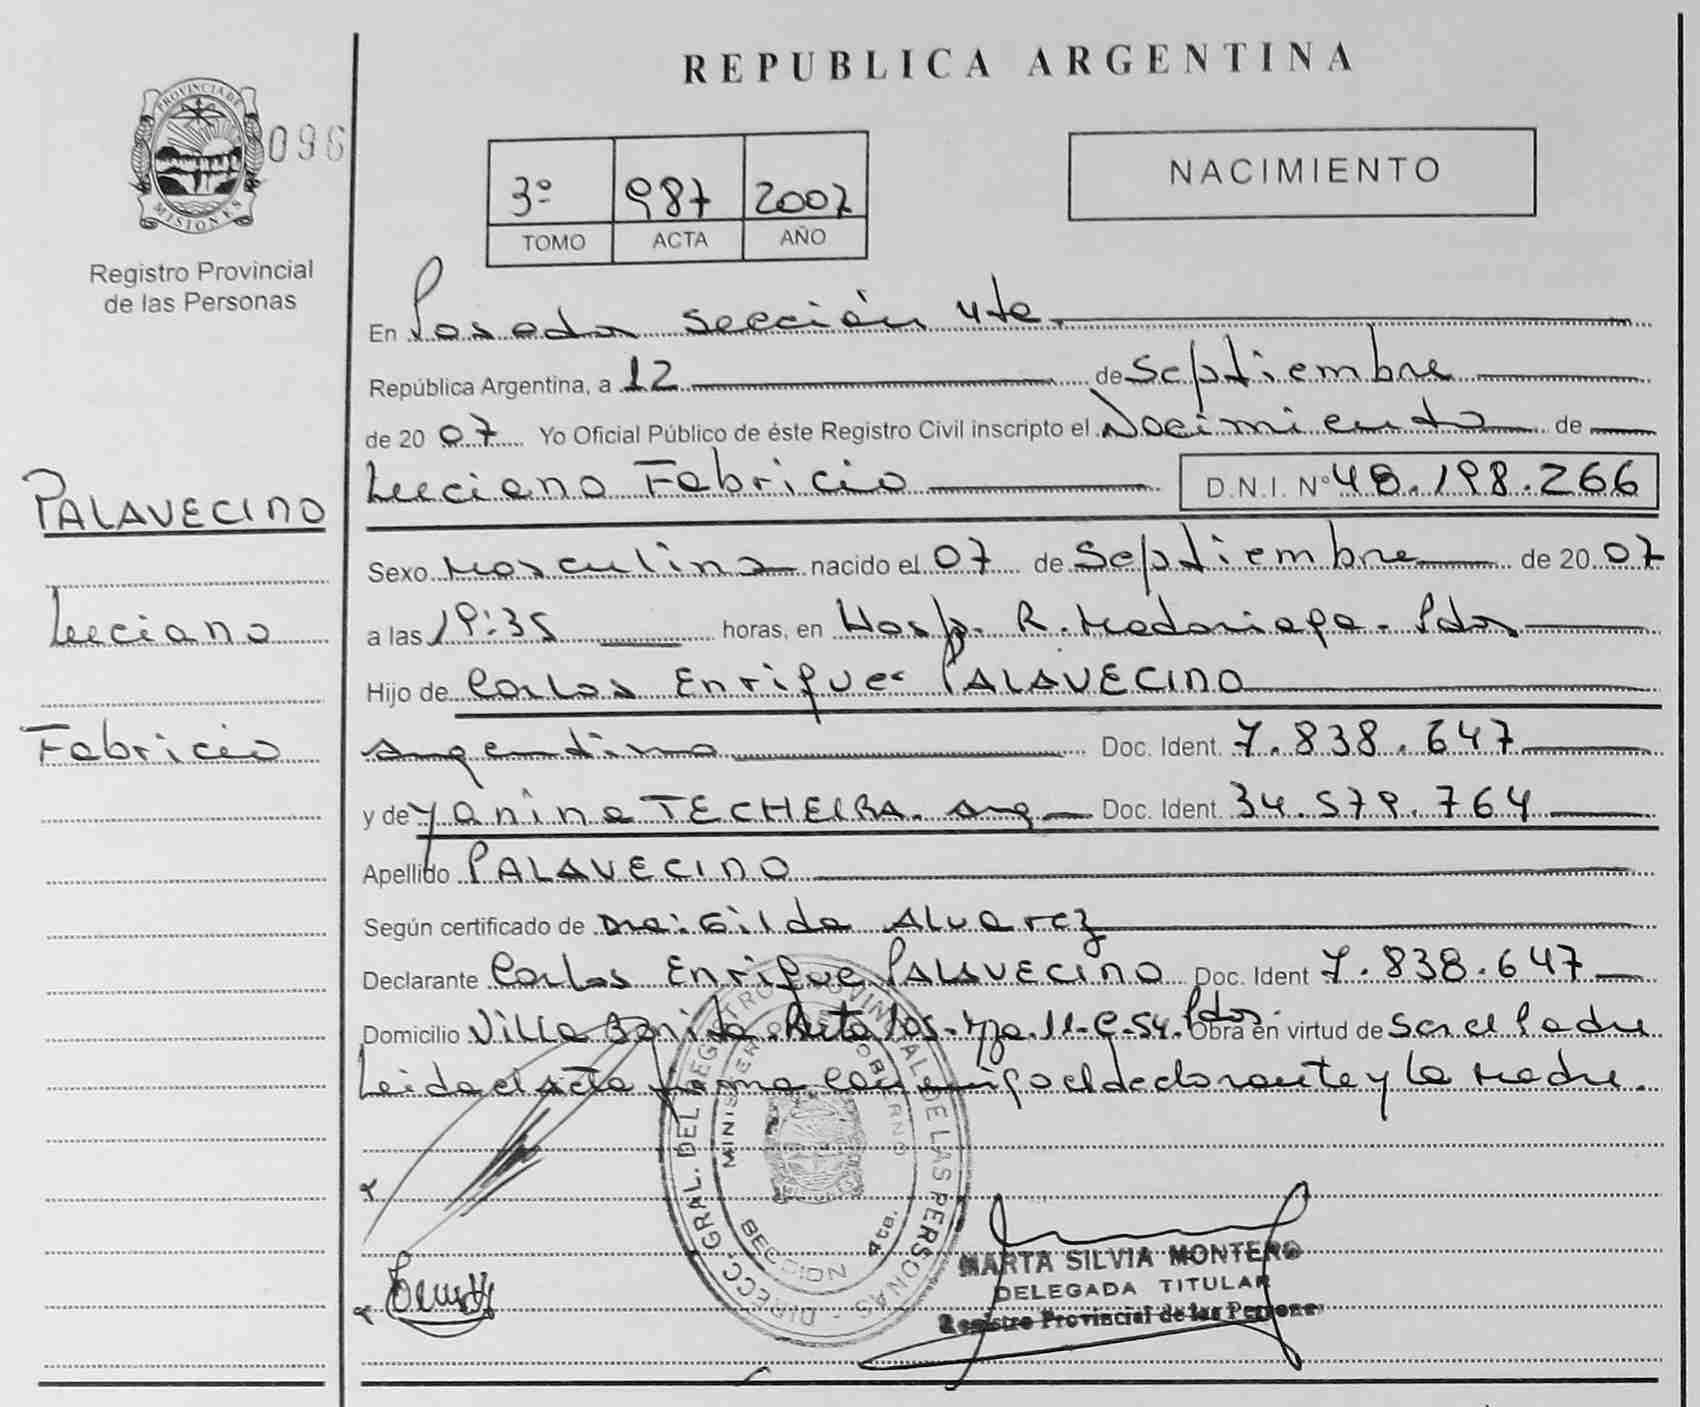 REPUBLICA ARGENTINA
PROVINCIA DE
MISIONES
096
Registro Provincial
de las Personas
3º 987 2007
TOMO ACTA AÑO
NACIMIENTO
En Posadas sección 4ta.
República Argentina, a 12 de Septiembre
de 2007 Yo Oficial Público de éste Registro Civil inscripto el Nacimiento de
Luciano Fabricio D.N.I. Nº 48.198.266
PALAVECINO
Luciano
Fabricio
Sexo Masculino nacido el 07 de Septiembre de 2007
a las 19:35 horas, en Hosp. R. Madariaga. Pdas
Hijo de Carlos Enrique PALAVECINO
Argentino Doc. Ident. 7.838.647
y de Yanina TECHEIRA. Arg Doc. Ident. 34.579.764
Apellido PALAVECINO
Según certificado de Dra: Gilda Alvarez
Declarante Carlos Enrique PALAVECINO Doc. Ident 7.838.647
Domicilio Villa Bonita. Ruta 105. Mza. 11-C.54. Pdas. Obra en virtud de Ser el Padre
Leida el acta firma conmigo el declarante y la Madre.
DIRECC. GRAL. DEL REGISTRO PROVINCIAL DE LAS PERSONAS
MINISTERIO GOBIERNO
SECCION 4ta.
MARTA SILVIA MONTERO
DELEGADA TITULAR
Registro Provincial de las Personas